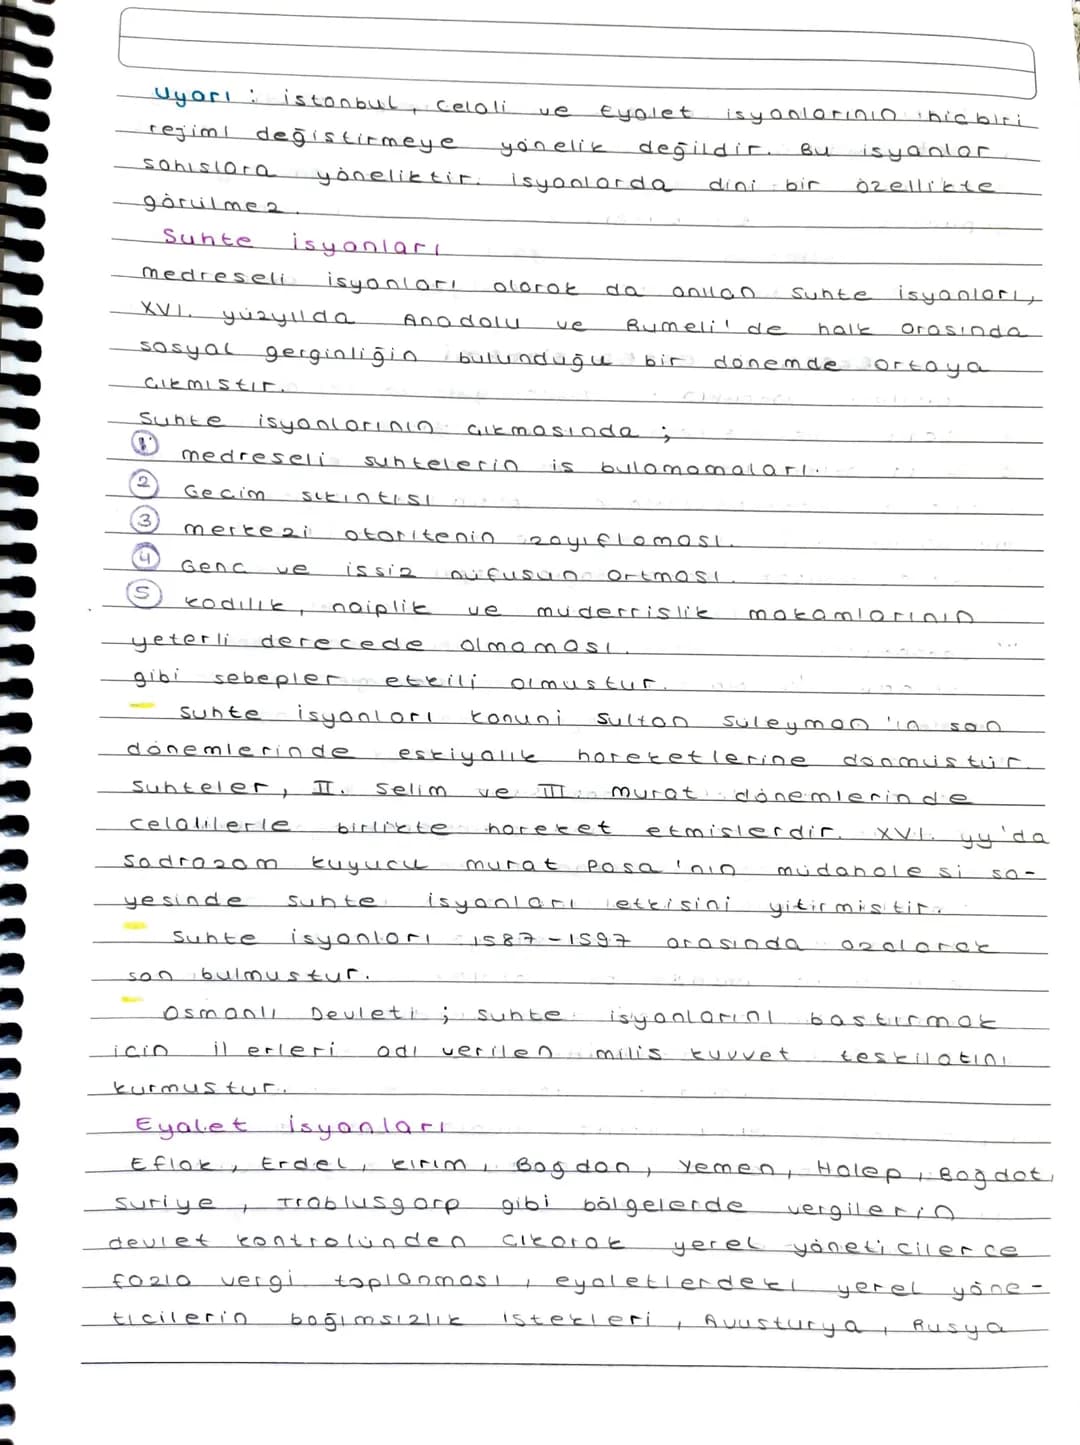 Uyarı : istanbul, Celali ve Eyalet isyanlarının hicbiri
rejimi değistirmeye yönelik değildir. Bu isyanlar
sahıslara yöneliktir. isyanlarda dini bir özellikte
görülmez.
Suhte isyanları
medreseli isyanları olarak da anılan Suhte isyanları,
XVI. yüzyılda Anadolu ve Rumeli'de halk arasında
sosyal gerginliğin bulunduğu bir dönemde ortaya
cıkmıstır.
Suhte isyanlarının cıkmasında ;
1 medreseli suhtelerin is bulamamaları.
2 Gecim sıkıntısı
3 merkezi otoritenin zayıflaması.
4 Genc ve issiz nüfusun artması.
5 kadılık, naiplik ve müderrislik makamlarının
yeterli derecede olmaması.
gibi sebepler etkili olmustur.
Suhte isyanları Kanuni Sultan Süleyman'ın son
dönemlerinde eskiyalık hareketlerine dönmüstür.
Suhteler, II. Selim ve III. murat dönemlerinde
celalilerle birlikte hareket etmislerdir. XVI. yy'da
Sadrazam kuyucu murat Pasa'nın müdahalesi sa-
yesinde suhte isyanları etkisini yitirmistir.
Suhte isyanları 1587-1597 arasında azalarak
son bulmustur.
Osmanlı Devleti ; suhte isyanlarını bastırmak
icin il erleri adı verilen milis kuvvet teskilatını
kurmustur.
Eyalet isyanları
Eflak, Erdel, kırım, Bogdan, Yemen, Halep, Bagdat,
Suriye, Trablusgarp gibi bölgelerde vergilerin
devlet kontrolünden cıkarak yerel yöneticilerce
fazla vergi toplanması, eyaletlerdeki yerel yöne-
ticilerin bağımsızlık istekleri, Avusturya, Rusya